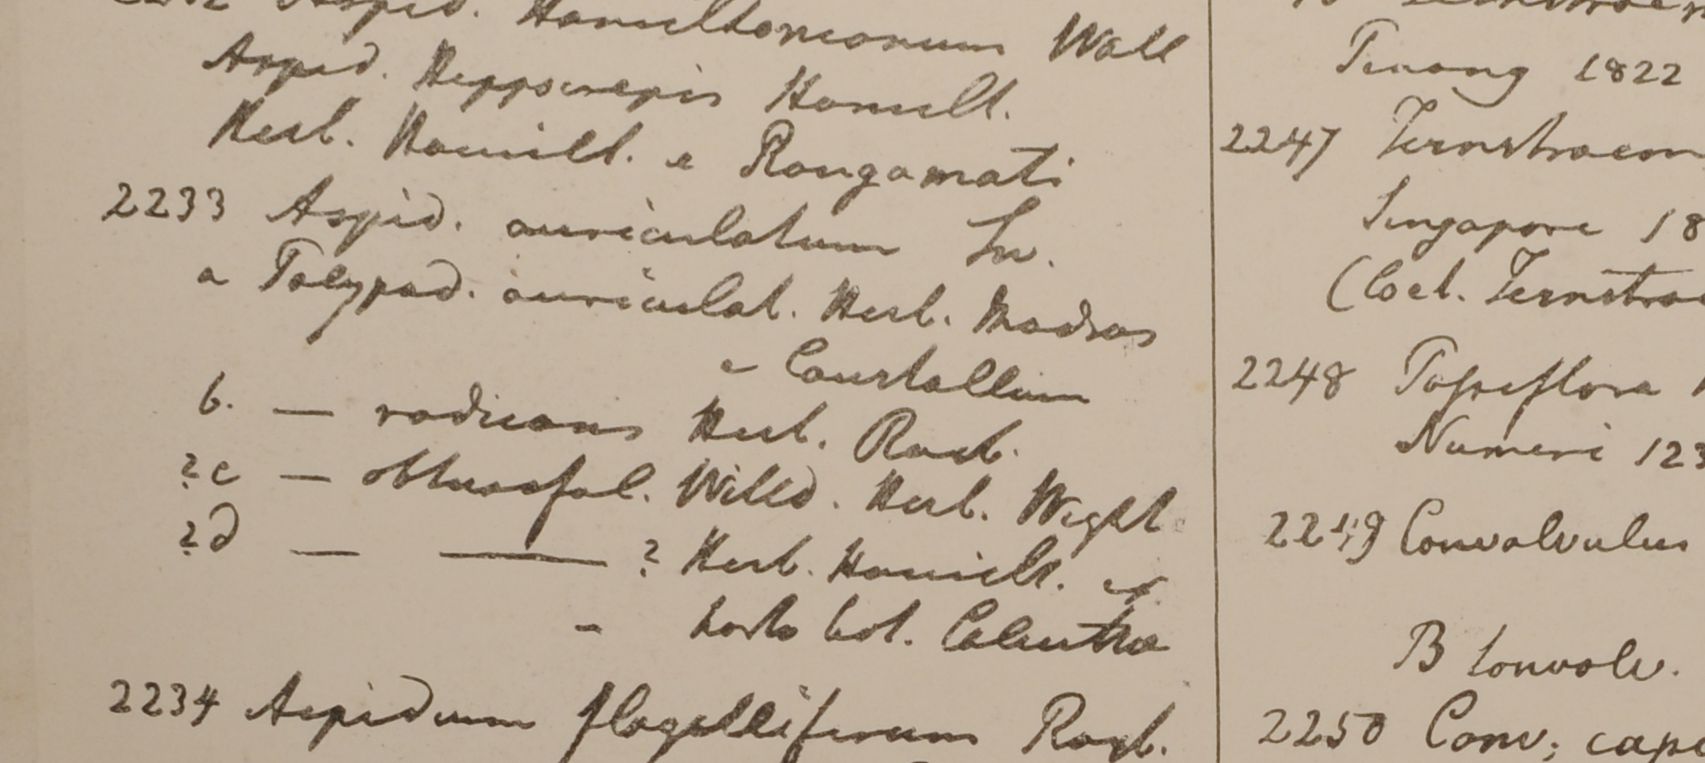 Aspid. Hamiltonianum Wall
Aspid. Hippocrepis Hamilt.
Herb. Hamilt. e Rongamati
2233 Aspid. auriculatum Sw.
a Polypod. auriculat. Herb. Madras
e Courtallum
b. — radicans Herb. Roxb.
?c — obtusifol. Willd. Herb. Wight
?d — — ? Herb. Hamilt. e
— horto bot. Calcutta
2234 Aspidium flagelliferum Roxb.
Penang 1822
2247 Ternstroem
Singapore 18
(Coel. Ternstroe
2248 Passiflora
Numeri 123
2249 Convolvulus
B Convolv.
2250 Conv. cape